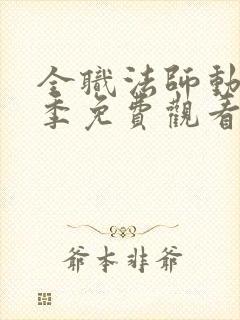 全職法師動
季免費觀看
爺本非爺